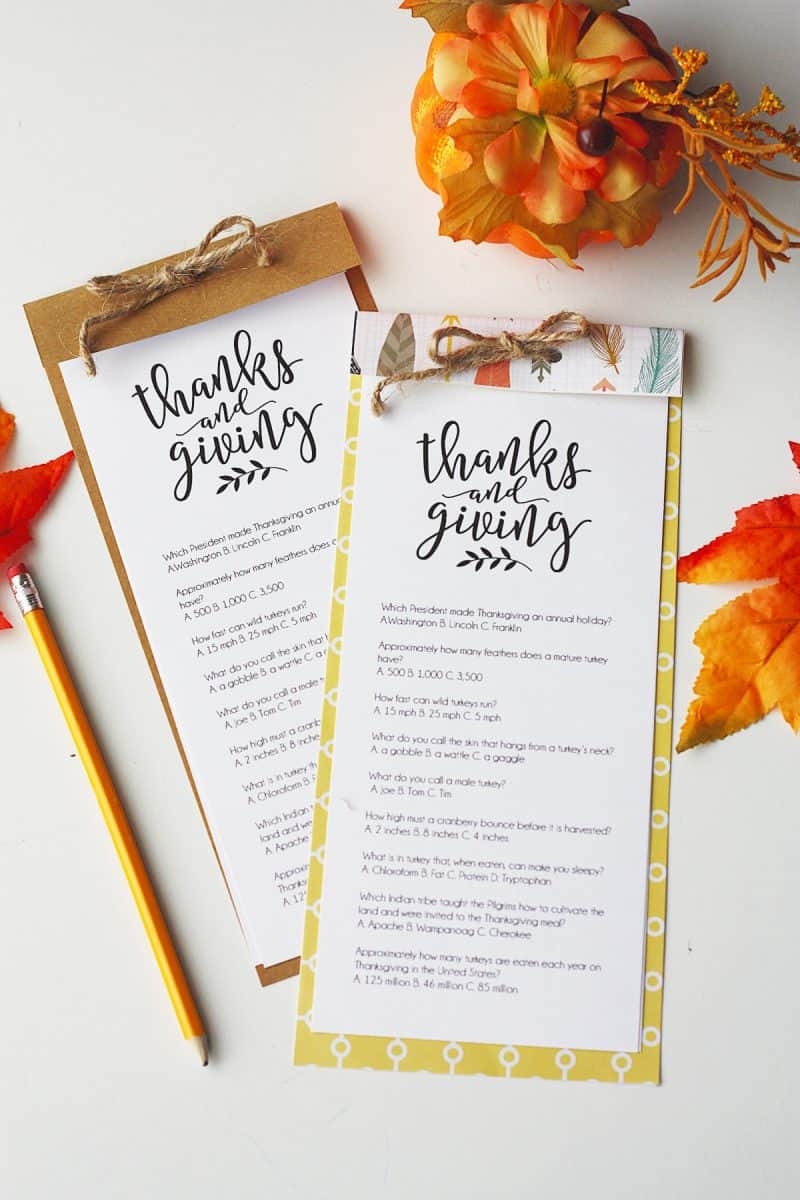 thanks
and
giving
Which President made Thanksgiving an annual
A.Washington B. Lincoln C. Franklin
Approximately how many feathers does a
have?
A: 500 B: 1,000 C: 3,500
How fast can wild turkeys run?
A: 15 mph B: 25 mph C: 5 mph
What do you call the skin that
A: a gobble B: a wattle C: a
What do you call a male
A: Joe B: Tom C: Tim
How high must a cranberry
A: 2 inches B: 8 inches
What is in turkey
A: Chloroform B: Fat
Which Indian
land and we
A: Apache
Approxim
Thanks
A: 12
thanks
and
giving
Which President made Thanksgiving an annual holiday?
A.Washington B. Lincoln C. Franklin
Approximately how many feathers does a mature turkey
have?
A: 500 B: 1,000 C: 3,500
How fast can wild turkeys run?
A: 15 mph B: 25 mph C: 5 mph
What do you call the skin that hangs from a turkey's neck?
A: a gobble B: a wattle C: a goggle
What do you call a male turkey?
A: Joe B: Tom C: Tim
How high must a cranberry bounce before it is harvested?
A: 2 inches B: 8 inches C: 4 inches
What is in turkey that, when eaten, can make you sleepy?
A: Chloroform B: Fat C: Protein D: Tryptophan
Which Indian tribe taught the Pilgrims how to cultivate the
land and were invited to the Thanksgiving meal?
A: Apache B: Wampanoag C: Cherokee
Approximately how many turkeys are eaten each year on
Thanksgiving in the United States?
A: 125 million B: 46 million C: 85 million